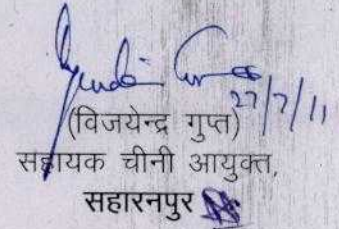 27/7/11
(विजयेन्द्र गुप्त)
सहायक चीनी आयुक्त,
सहारनपुर